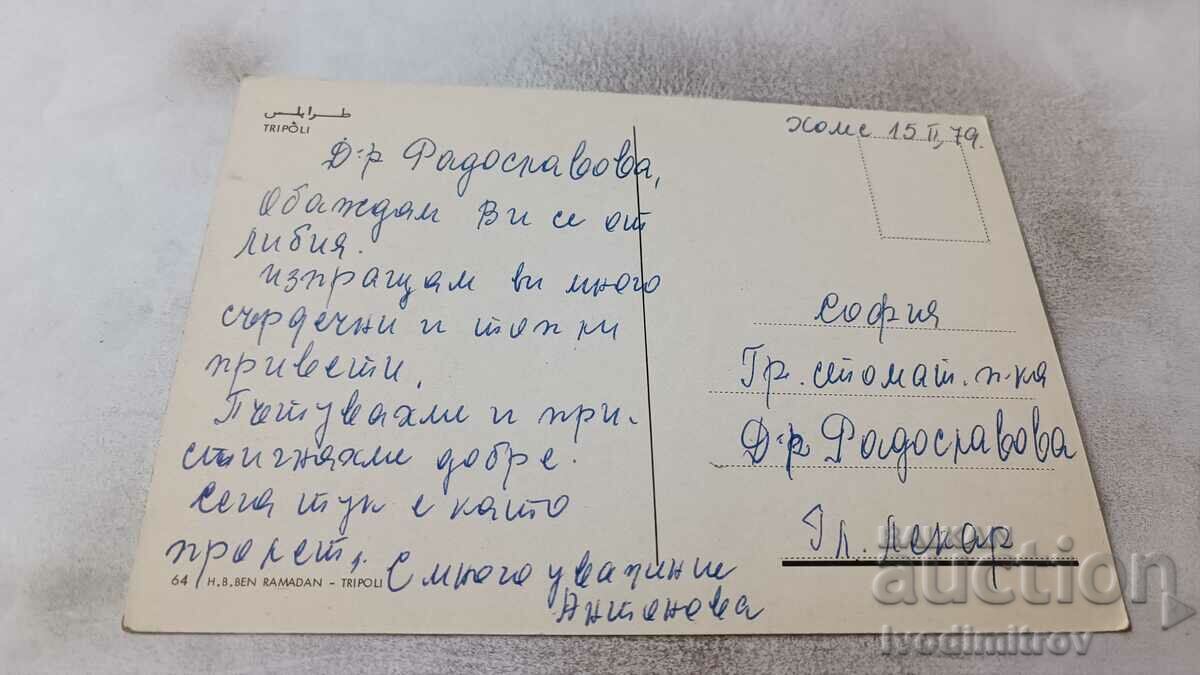 طرابلس
TRIPOLI
Хомс 15 II, 79.
Д-р Радославова,
обаждам Ви се от
Либия.
изпращам ви много
сърдечни и топли
привети.
Пътувахме и при-
стигнахме добре.
Сега тук е като
пролет,
С много уважение
Антонова
64 H.B.BEN RAMADAN - TRIPOLI
София
Гр. стомат. п-ка
Д-р Радославова
Гл. лекар
BALKAN
auction
Ivodimitrov